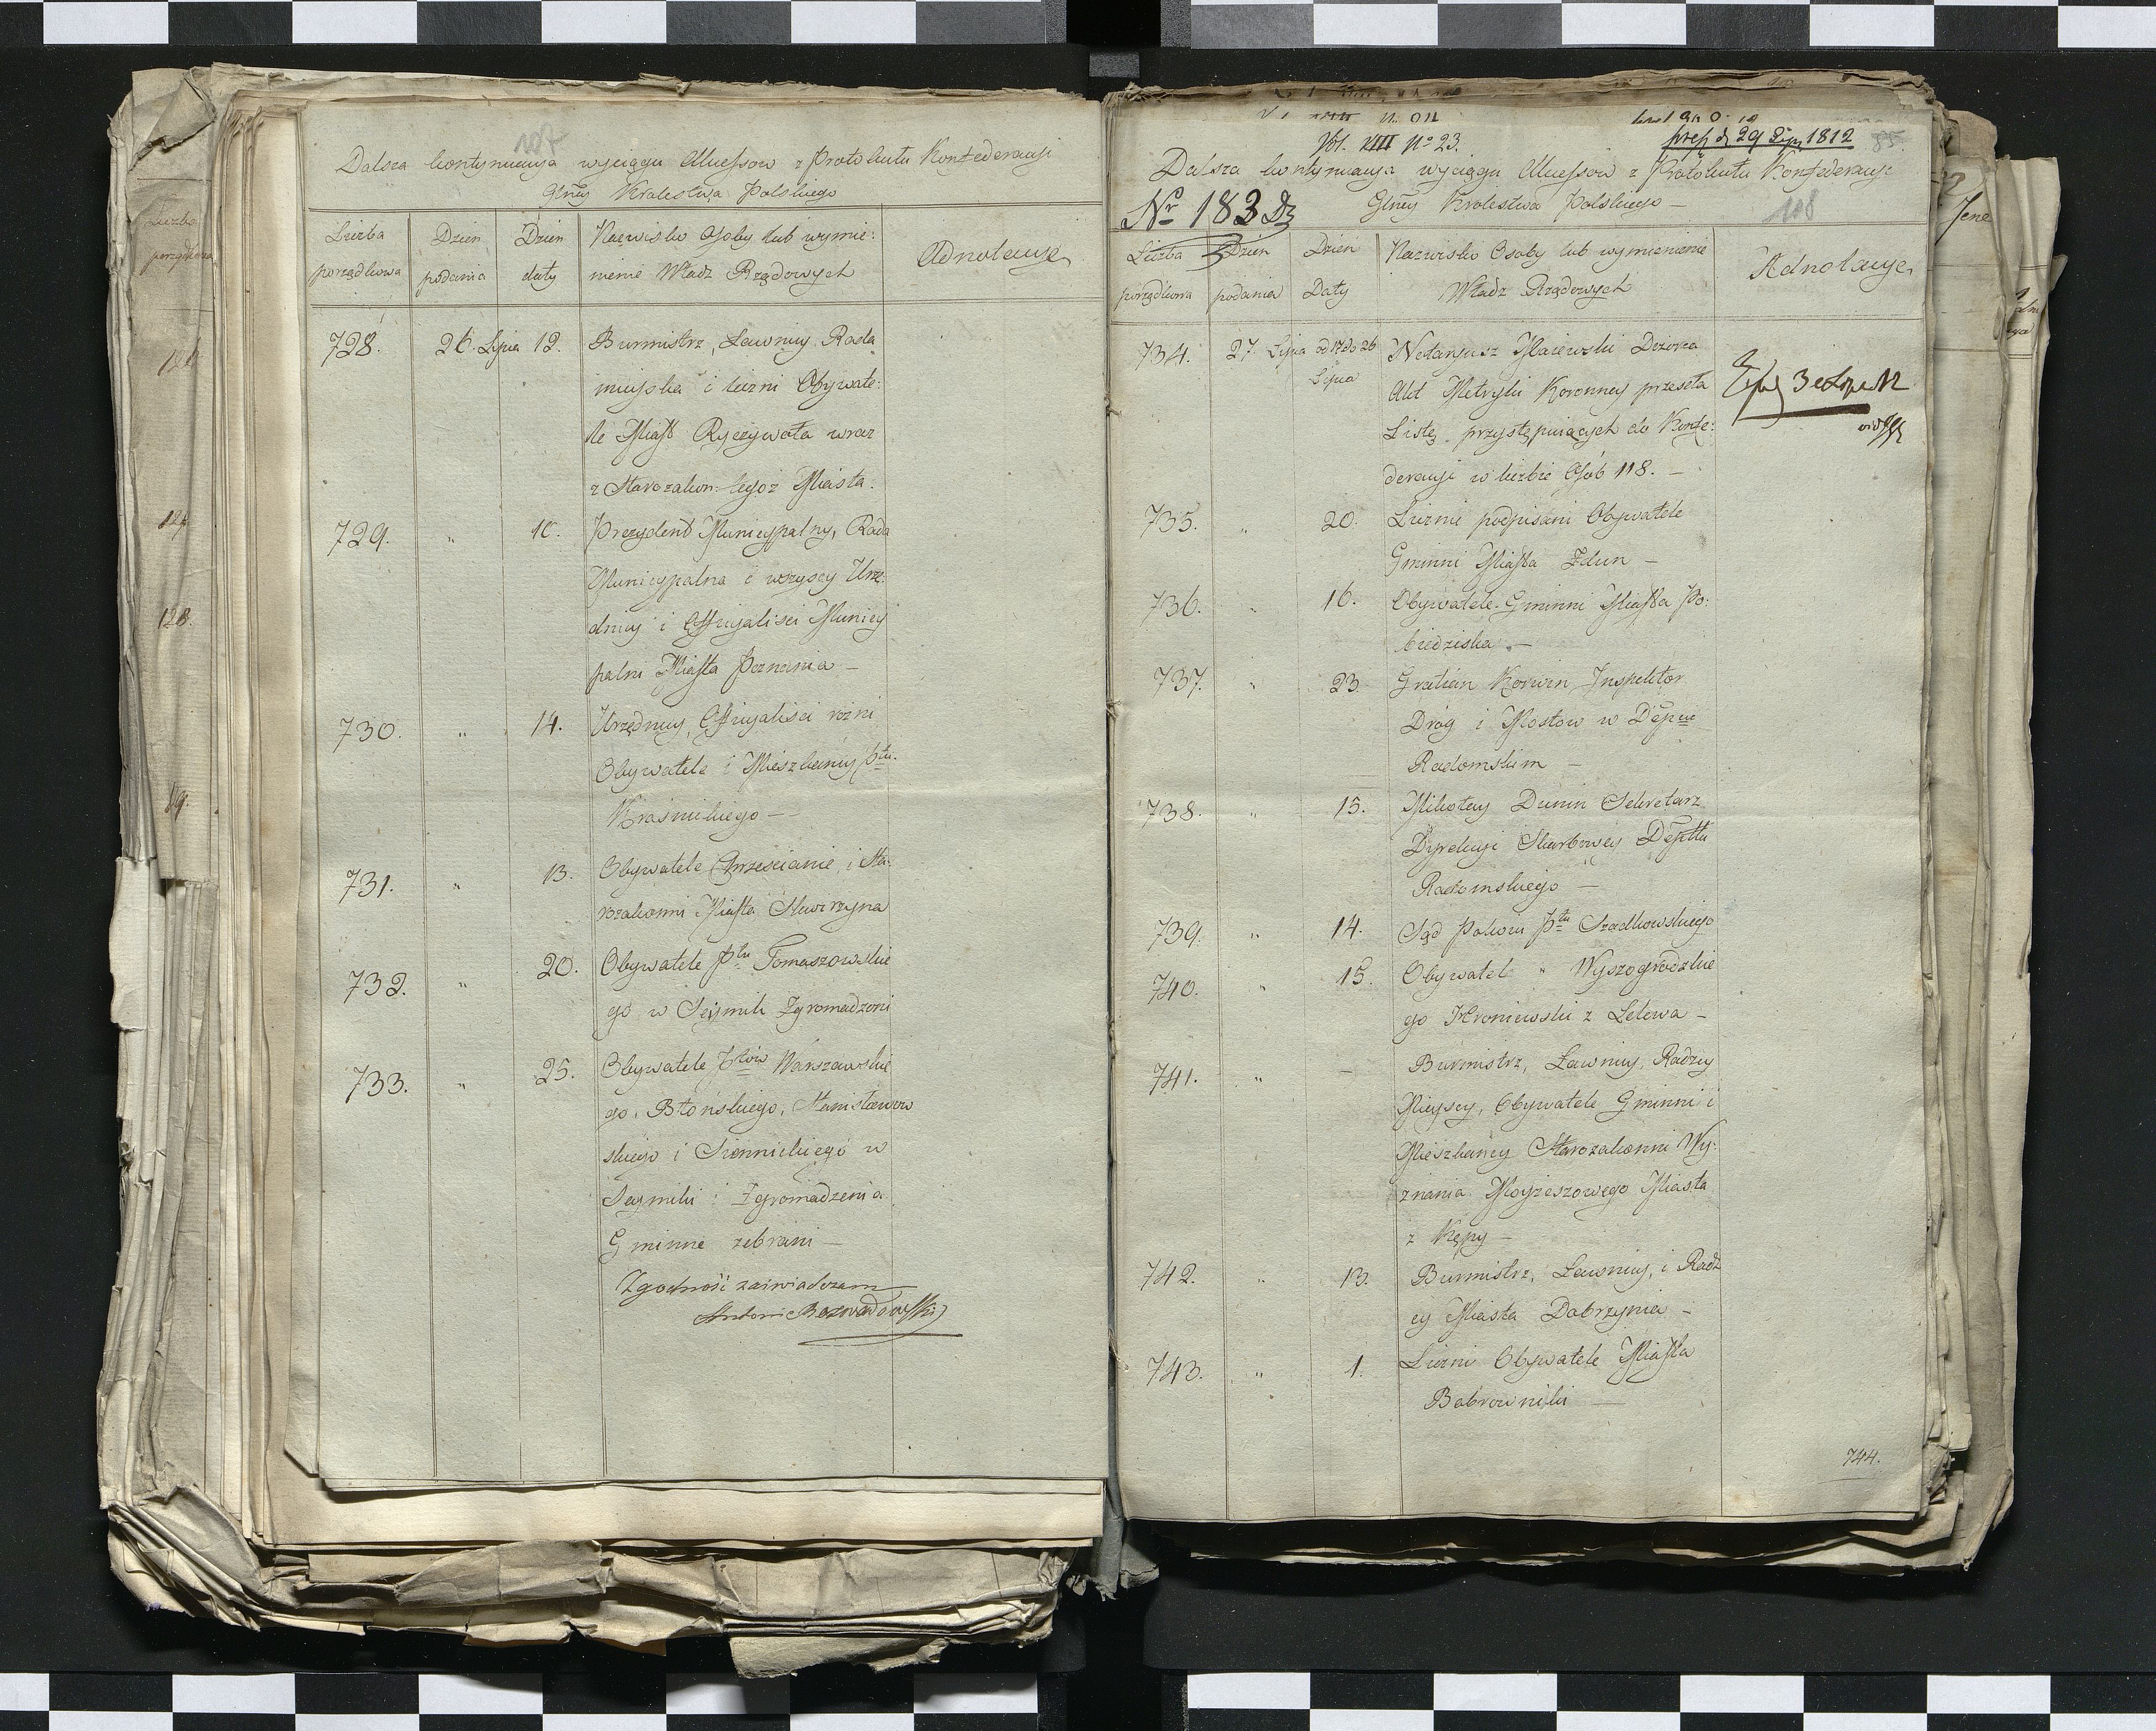 107
Dalsza kontynuacya wyciągu Akcessow z Protokułu Konfederacyi
Glney Krolestwa Polskiego
Liczba porządkowa
Dzien podania
Dzien daty
Nazwisko Osoby lub wymie:
nienie Władz Rządowych
Adnotacye
728. 26. Lipca 12. Burmistrz, Ławnicy Rada
mieyska i liczni Obywate:
le Miast Ryczywoła wraz
z Starozakon: tegoż Miasta.
729. " 10. Prezydent Municypalny, Rada
Municypalna i wszyscy Urzę:
dnicy i Officyalisci Municy
palni Miasta Poznania —
730. " 14. Urzędnicy, Officyalisci rożni
Obywatele i Mieszkańcy Pttu.
Kraśnickiego —
731. " 13. Obywatele Chrześcianie, i Sta:
rozakonni Miasta Skwirzyna
732. " 20. Obywatele Pttu Tomaszowskie
go w Seymik Zgromadzeni
733. " 25. Obywatele Pttów Warszawskie
go, Błońskiego, Stanisławow
skiego i Siennickiego w
Seymiki i Zgromadzenia
Gminne zebrani —
Zgodność zaświadczam
Antoni Rozwadowski
Vol. VIII No 23.
85.
Dalsza kontynuacya wyciągu Akcessow z Protokułu Konfederacyi
Nr 183 Dz
Glney Krolestwa Polskiego —
108
Liczba porządkowa
Dzien podania
Dzien Daty
Nazwisko Osoby lub wymienienie
Władz Rządowych
Adnotacye
734. 27. Lipca od 17 do 26 Notaryusz Maiewski Dozorca
Lipca
Akt Metryki Koronney przesła
Listę przystępuiących do Konfe:
deracyi w liczbie Osób 118. —
735. " 20. Liczni podpisani Obywatele
Gminni Miasta Zdun —
736. " 16. Obywatele Gminni Miasta Po:
biedziska. —
737. " 23. Gratian Korwin Inspektor
Dróg i Mostow w Depcie
Radomskim —
738. " 15. Mikołay Dunin Sekretarz
Dyrekcyi Skarbowey Depttu
Radomskiego —
739. " 14. Sąd Pokoiu Pttu Szadkowskiego
740. " 15. Obywatel " Wyszogrodzkie
go Kroniewski z Lelowa —
741. " — Burmistrz, Ławnicy, Radzcy
Mieyscy, Obywatele Gminni i
Mieszkancy Starozakonni Wy:
znania Moyżeszowego Miasta
z Kępy —
742. " 13. Burmistrz, Ławnicy, i Radz
cy Miasta Dobrzynia —
743. " 1. Liczni Obywatele Miasta
Bobrowniki —
744.